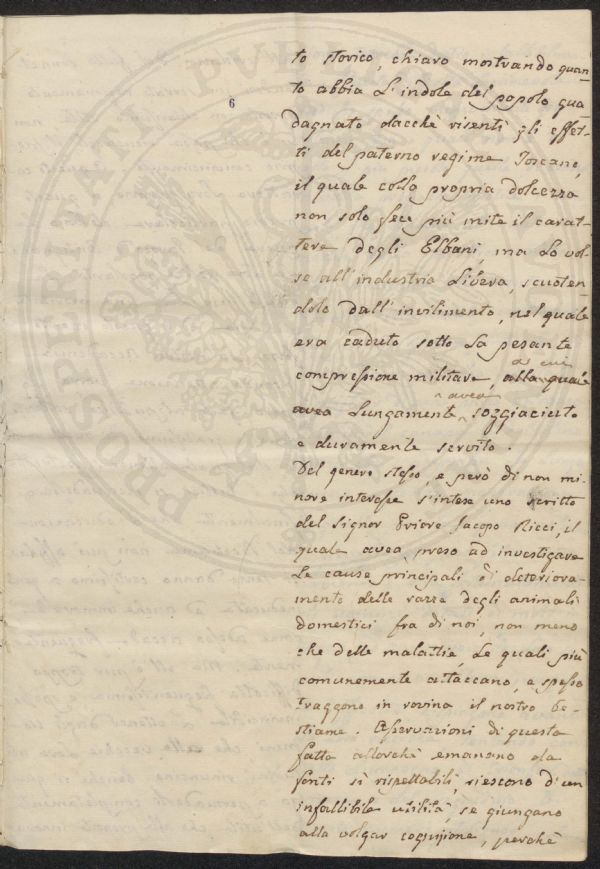 6
to storico, chiaro mostrando quan-
to abbia l'indole del popolo gua
dagnato dacchè risentì gli effet-
ti del paterno regime Toscano,
il quale colla propria dolcezza
non solo fece più mite il carat-
tere degli Elbani, ma lo vol-
se all'industria libera, scuoten-
dolo dall'invilimento, nel quale
era caduto sotto la pesante
a cui
compressione militare, alla quale
avea
avea lungamente soggiaciuto
e duramente servito.
Del genere stesso, e però di non mi-
nore interesse s'intese uno scritto
del Signor Priore Jacopo Ricci, il
quale avea preso ad investigare
le cause principali di deteriora-
mento delle razze degli animali
domestici fra di noi, non meno
che delle malattie, le quali più
comunemente attaccano, e spesso
traggono in rovina il nostro be-
stiame. Osservazioni di questa
fatta allorchè emanano da
fonti sì rispettabili, riescono di un
infallibile utilità, se giungano
alla volgar cognizione, perchè
PROSPERITATI PUBLICAE